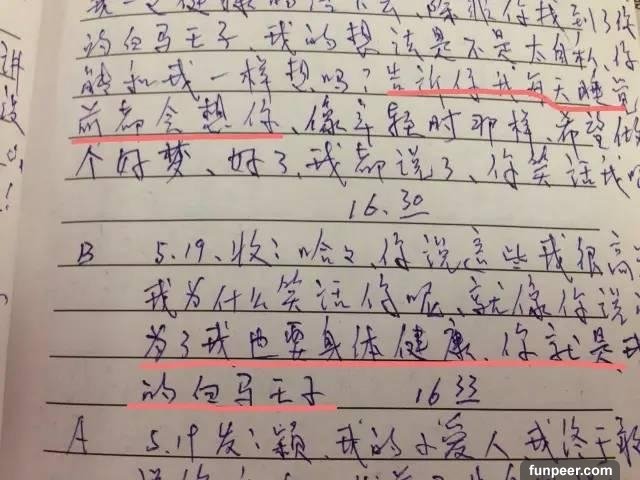 的白马王子、我的想法是不是太自私、你
能和我一样想吗？告诉你我每天睡觉
前都会想你、像年轻时那样、希望做
个好梦、好了、我都说了、你笑话我
16.30
B 5.19、收：哈哈、你说这些我很高
我为什么笑话你呢、就像你说
为了我也要身体健康、你就是我
的白马王子 16 33
A 5.19发：颖、我的小爱人、我终于敢
funpeer.com